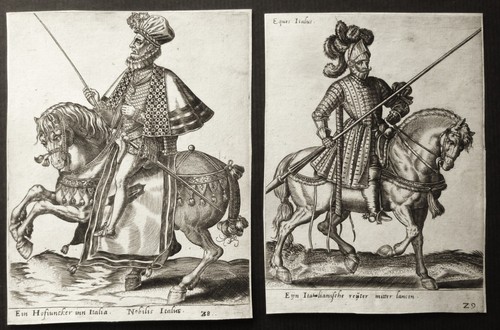 Ein Hofiuncker inn Italia. Nobilis Italus. 28
Eques Italus.
Eyn Italianische reüter mitter lancen
29